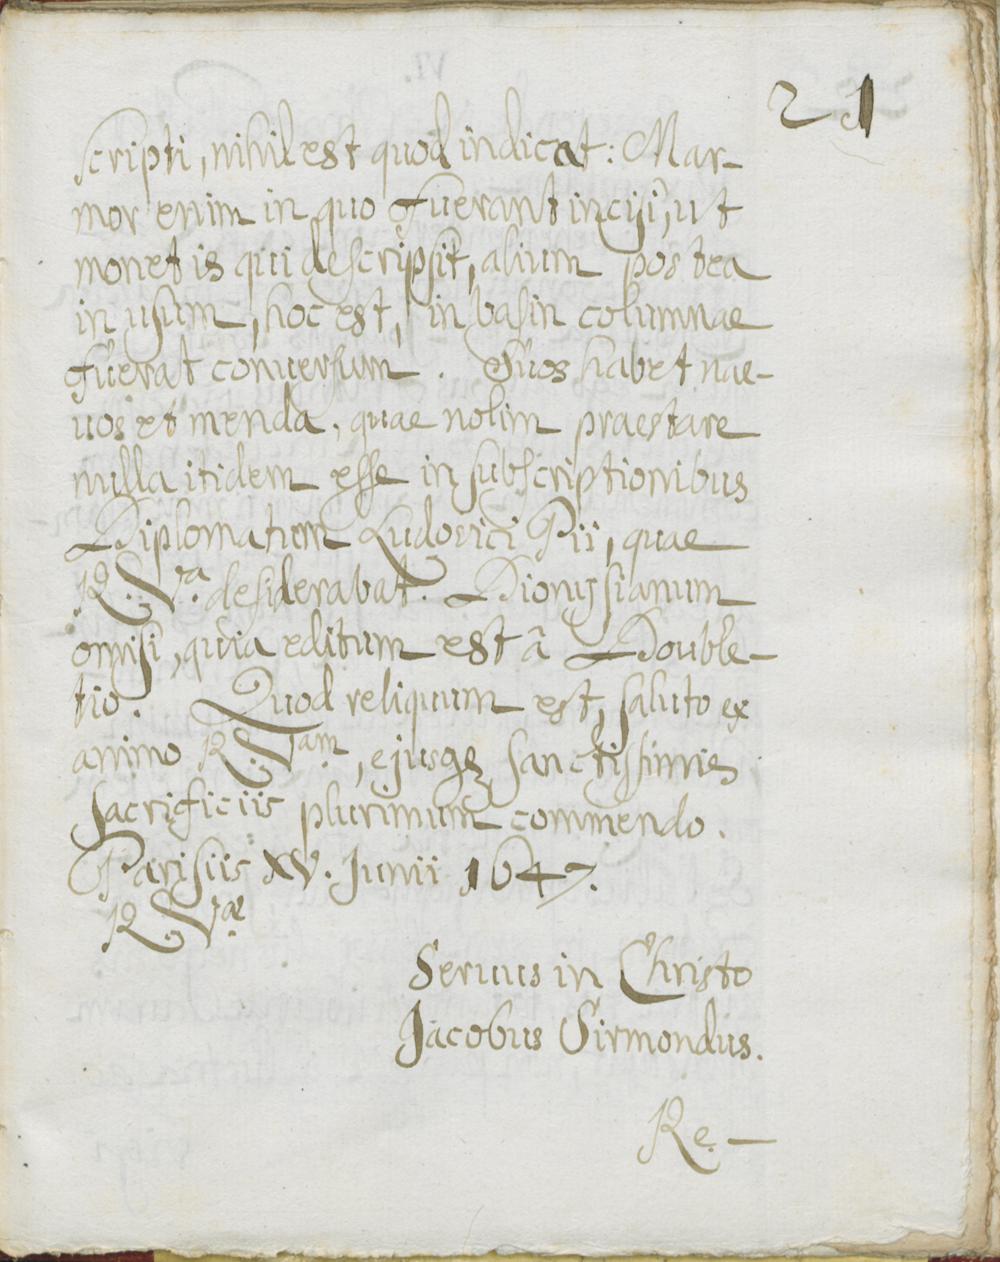 21
scripti, nihil est quod indicat: Mar-
mor enim in quo fuerant incisi, ut
monet is qui descripsit, alium postea
in usum, hoc est, in basin columnae
fuerat conuersum. Suos habet nae-
uos et menda, quae nolim praestare
nulla itidem esse in subscriptionibus
Diplomatum Ludovici Pii, quae
R. V.ra desiderabat. Dionysianum
omisi, quia editum est â Double-
tio. Quod reliquum est, saluto ex
animo R. V.am, ejusq; sanctissimis
sacrificiis plurimum commendo.
Parisiis XV. Junii 1647.
R V.ae
Seruus in Christo
Jacobus Sirmondus.
Re-